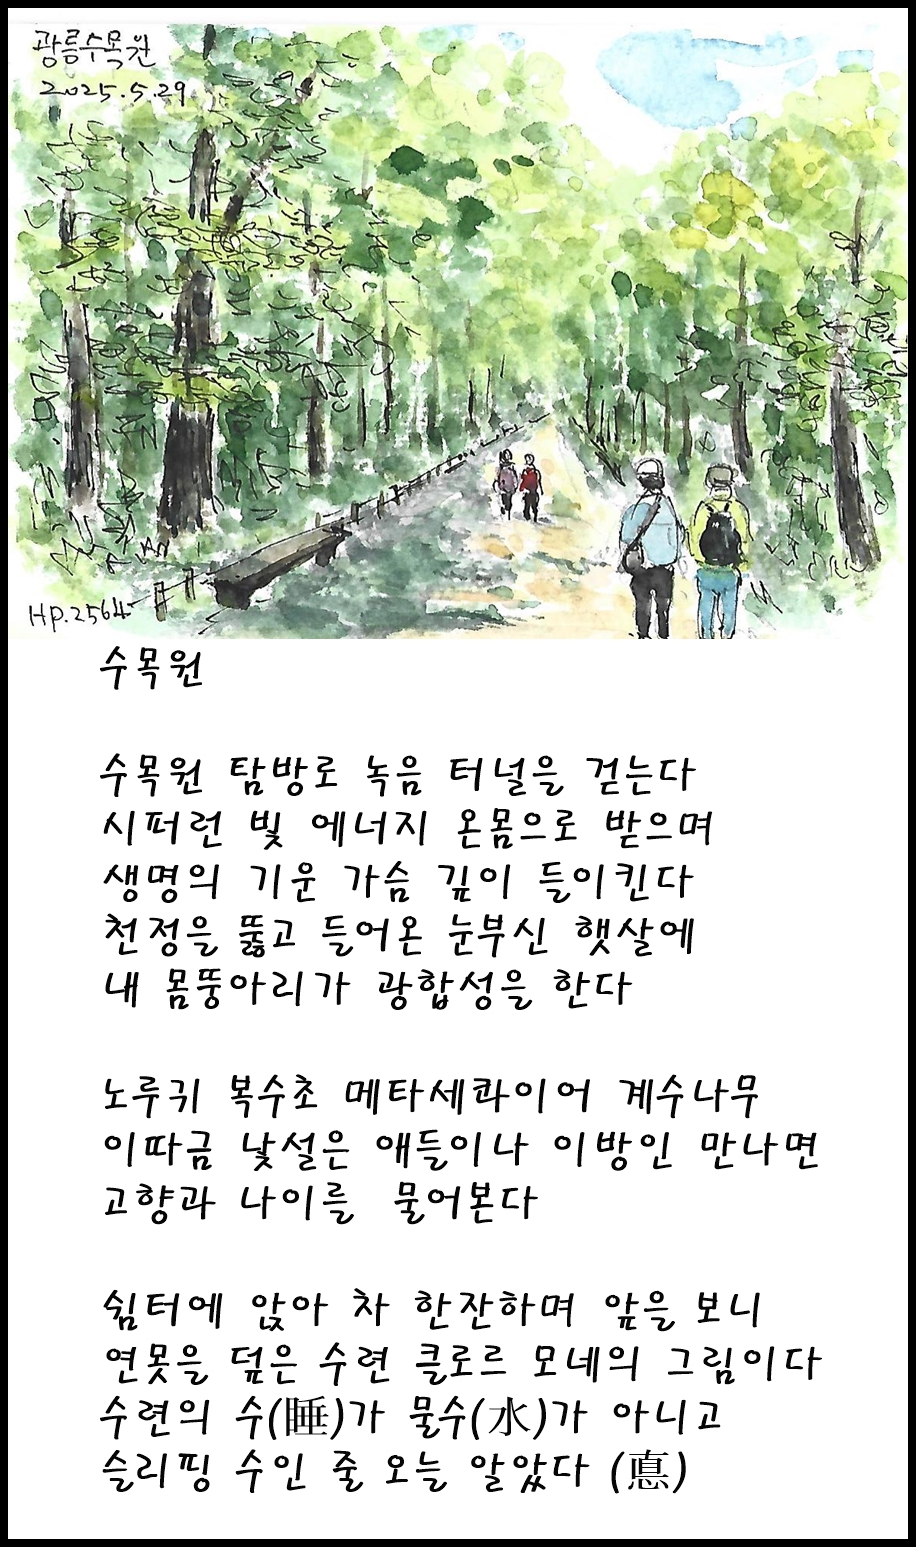 광릉수목원
2025.5.29
HP.2564
수목원
수목원 탐방로 녹음 터널을 걷는다
시퍼런 빛 에너지 온몸으로 받으며
생명의 기운 가슴 깊이 들이킨다
천정을 뚫고 들어온 눈부신 햇살에
내 몸뚱아리가 광합성을 한다
노루귀 복수초 메타세콰이어 계수나무
이따금 낯설은 얘들이나 이방인 만나면
고향과 나이를 물어본다
쉼터에 앉아 차 한잔하며 앞을 보니
연못을 덮은 수련 클로르 모네의 그림이다
수련의 수(睡)가 물수(水)가 아니고
슬리핑 수인 줄 오늘 알았다 (悳)